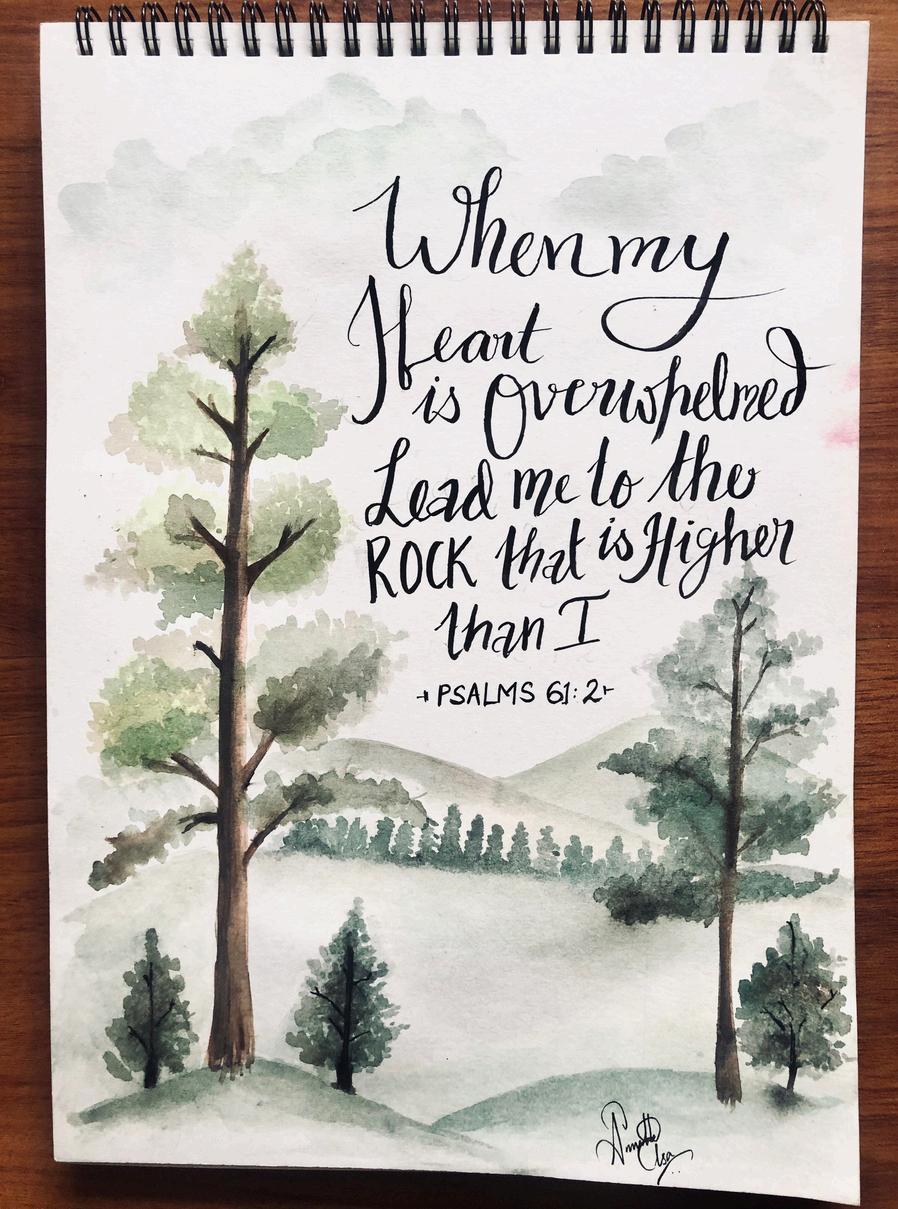 When my
Heart
is Overwhelmed
Lead me to the
ROCK that is Higher
than I
PSALMS 61:2